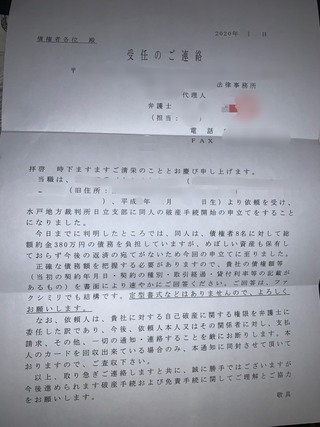 2020年　1　日
債権者各位　殿
受任のご連絡
〒
法律事務所
代理人
弁護士
（担当：　）
電話
FAX
拝啓　時下ますますご清栄のこととお慶び申し上げます。
当職は、
（旧住所：
）、平成　年　月　日生）より依頼を受け、
水戸地方裁判所日立支部に同人の破産手続開始の申立てをすること
になりました。
今日までに判明したところでは、同人は、債権者8名に対して総
額約金380万円の債務を負担していますが、めぼしい資産も保有し
ておらず今後の返済の宛てがないため今回の申立てに至りました。
正確な債務額を把握する必要がありますので、貴社の債権額等
（当初の契約年月日・契約の種別・取引経過・貸付利率等の記載が
あるもの）を書面により速やかにご回答ください。ご回答は、ファ
クシミリでも結構です。定型書式などはありませんので、よろしく
お願いします。
なお、依頼人は、貴社に対する自己破産に関する権限を弁護士に
委任した訳であり、今後、依頼人本人又はその関係者に対し、支払
請求、その他、一切の通知・連絡することを厳にお断りします。本
人のカードを回収出来ている場合のみ、本通知に同封させて頂いて
おりますので、ご査収下さい。
以上、取り急ぎご連絡しますと共に、誠に勝手ではございますが
今後進められます破産手続および免責手続に関してご理解とご協力
をお願いします。
敬具